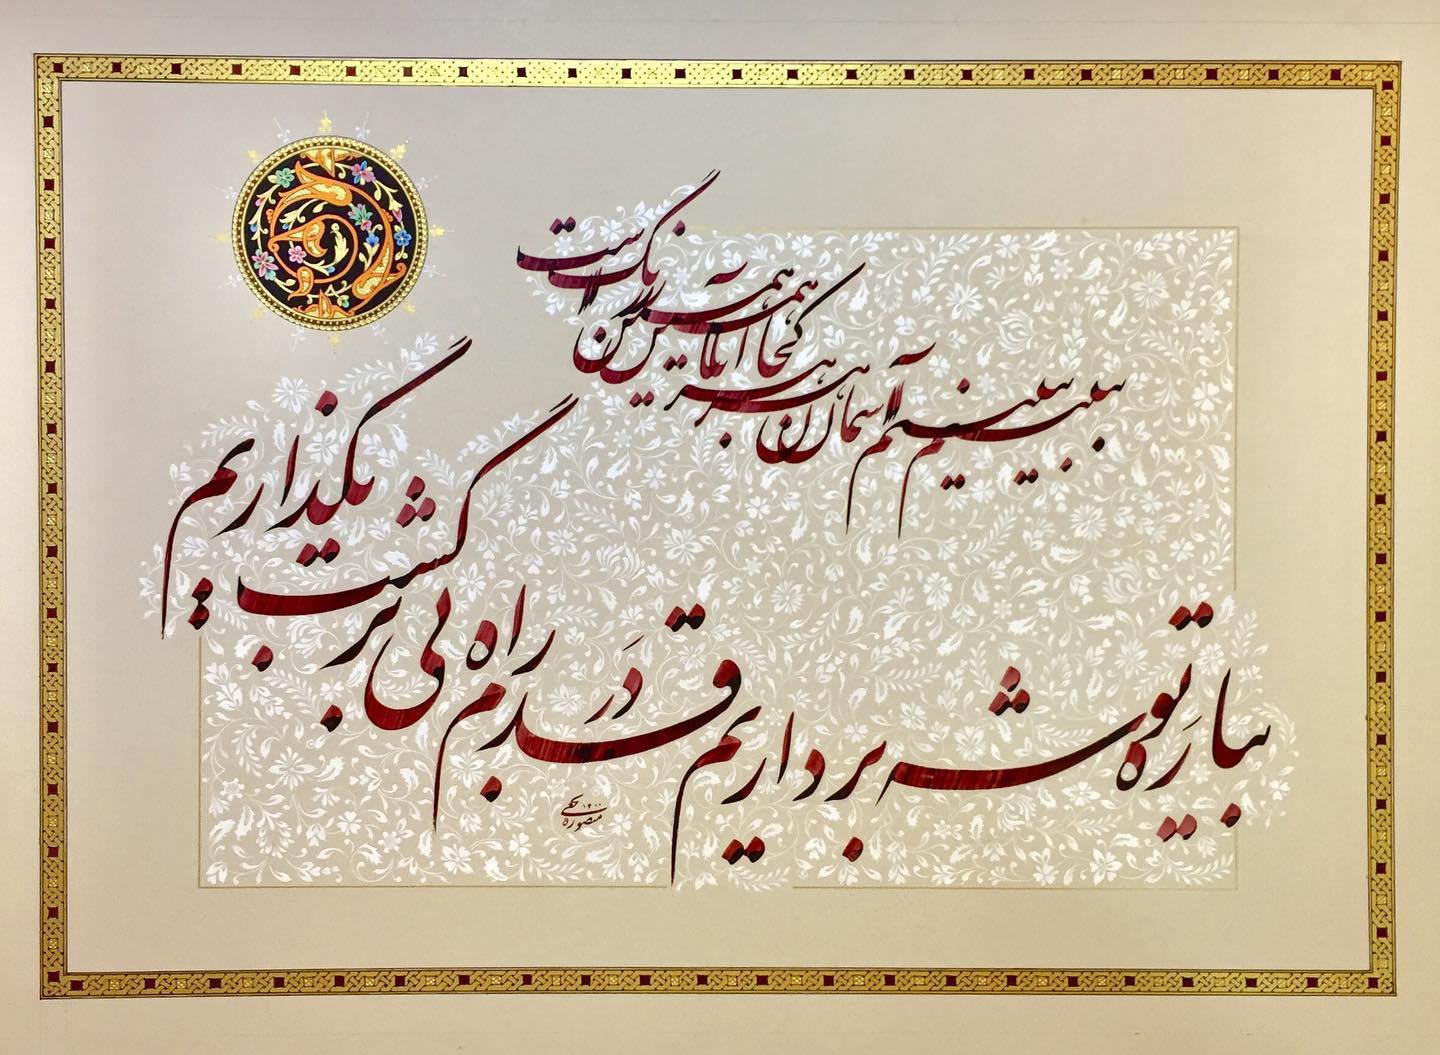 ببینیم آسمان هر کجا آیا همین رنگ است
بیا رَه توشه برداریم قدم دَر راه بی برگشت بگذاریم
منصوره ۱۴۰۰